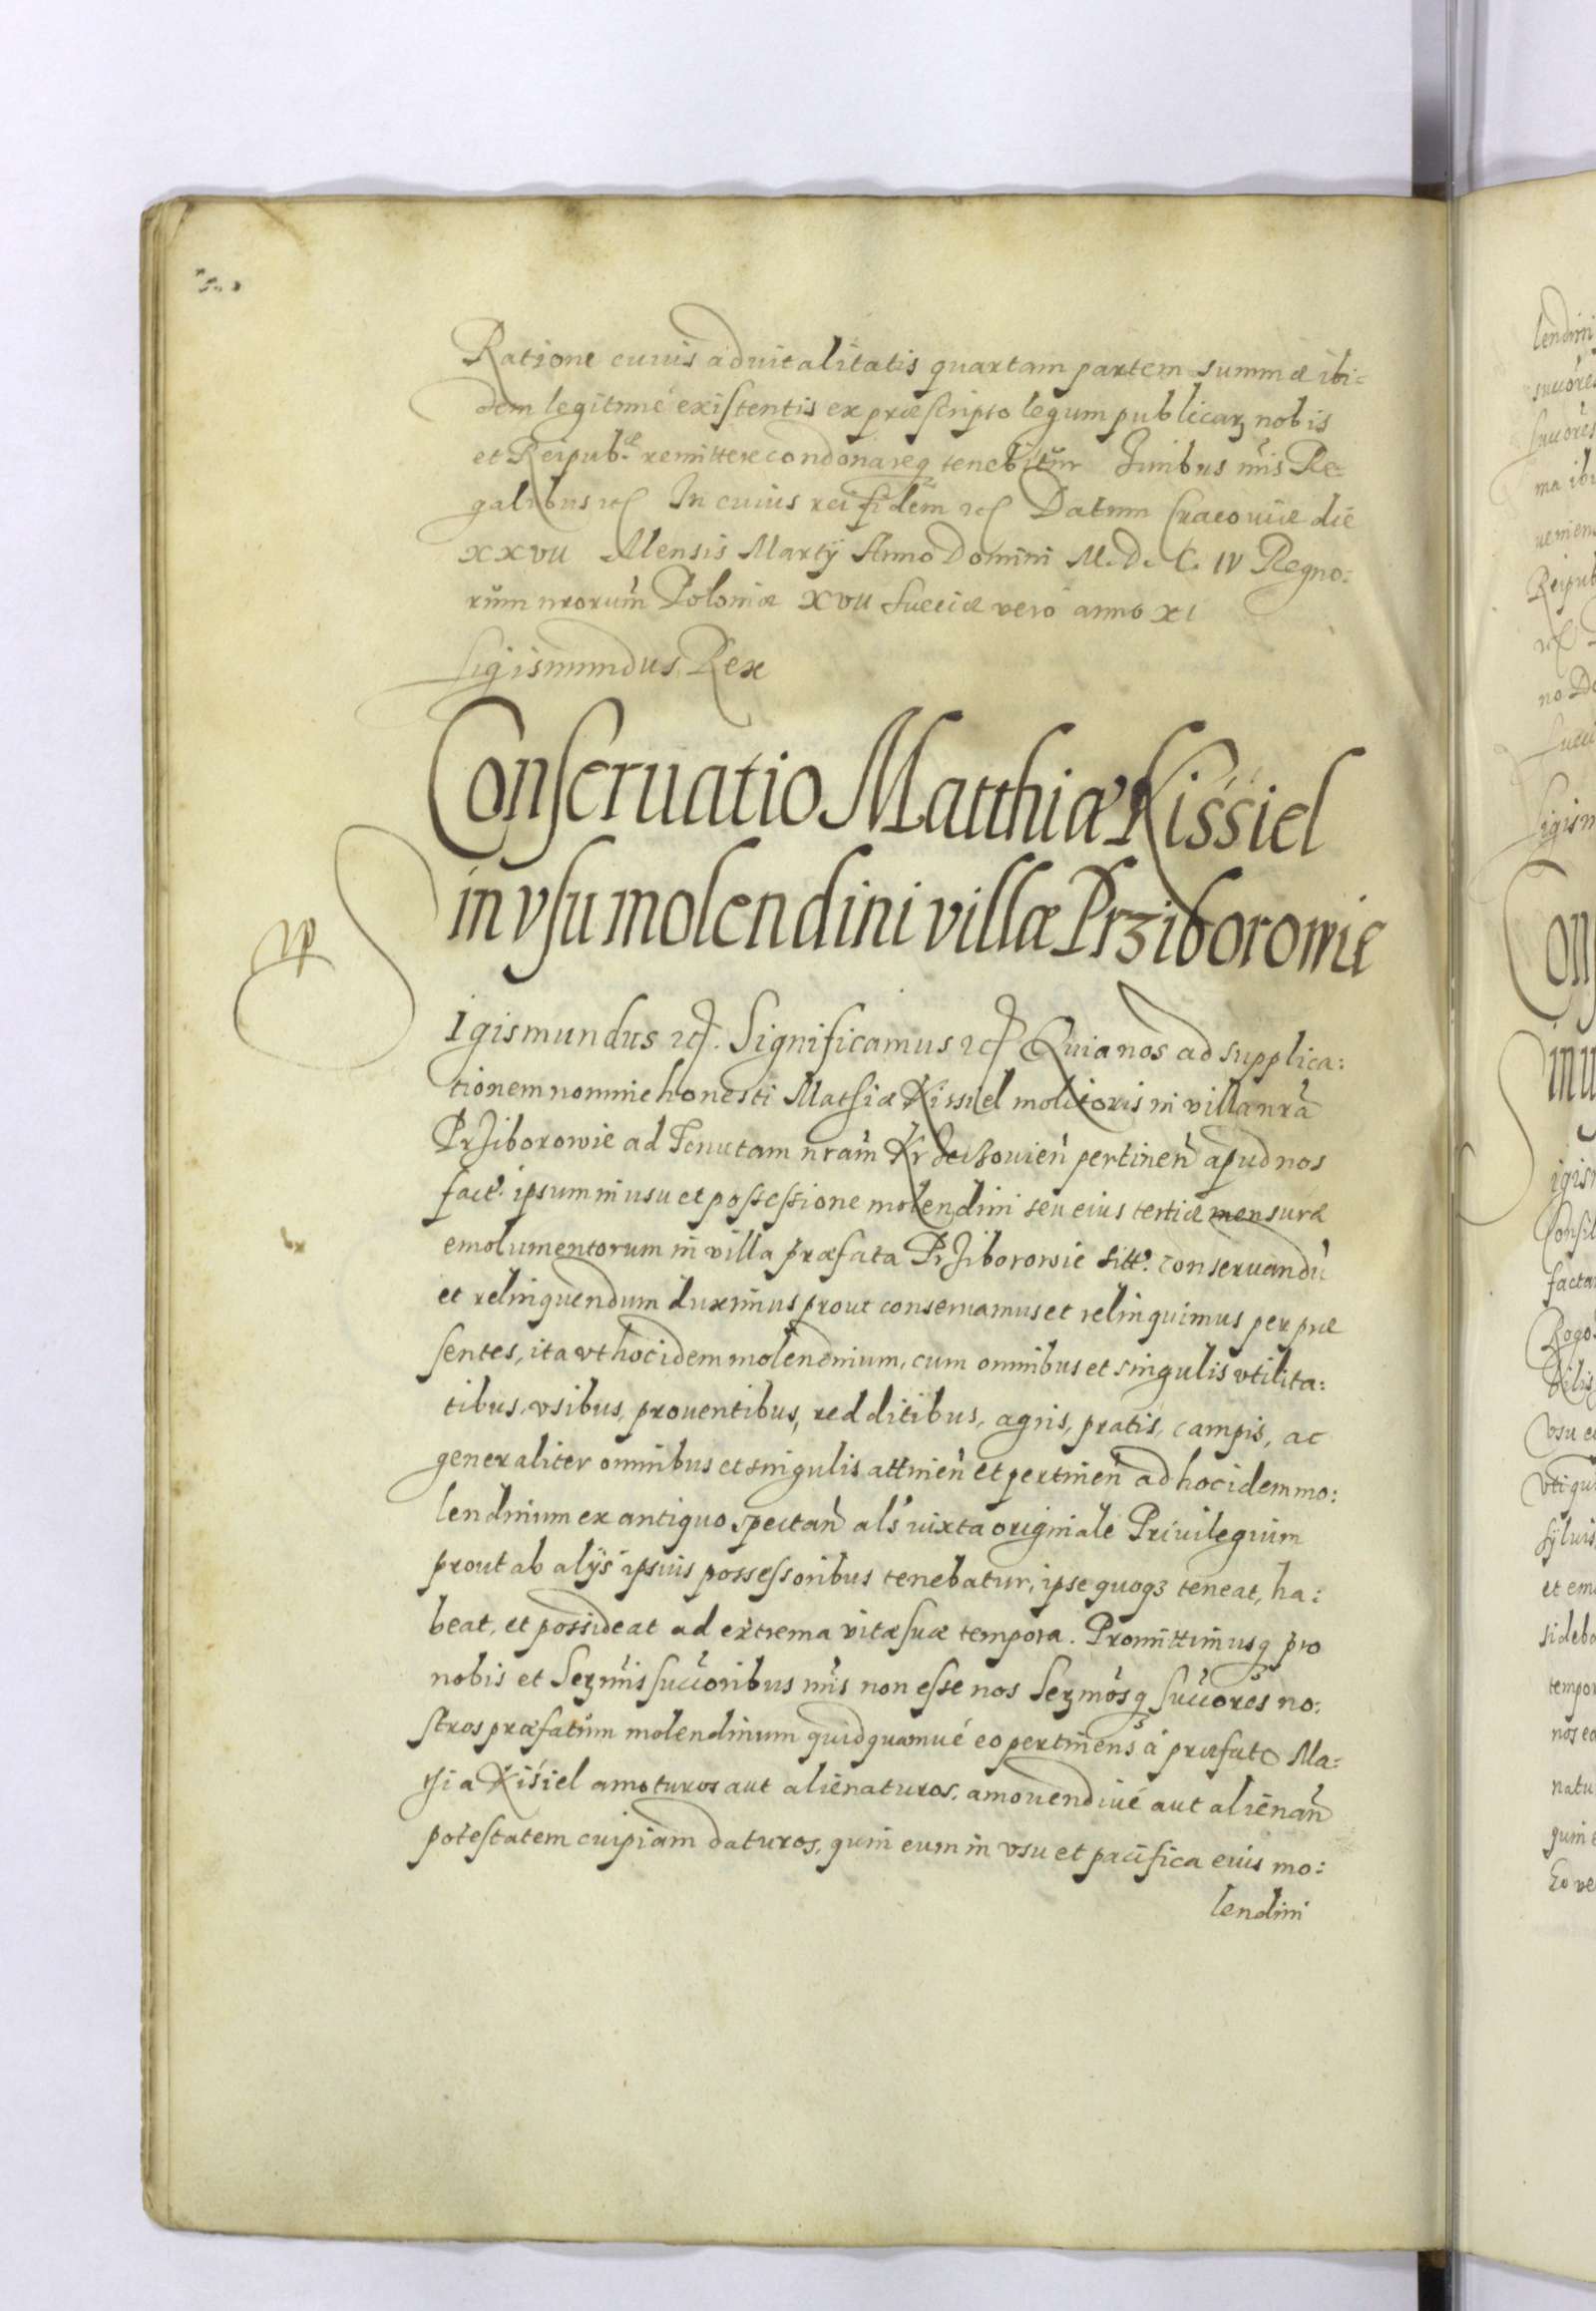 Ratione cuius aduitalitatis quartam partem summæ ibi=
dem legitimé existentis ex præscripto legum publicarꝫ nobis
et Reipubᵉ. remittere condonareq tenebitur Iuribus nr̃is Re=
galibus etc̃ In cuius rei fidem etc̃ Datum Cracouiæ die
XXVII Mensis Martÿ Anno Domini M.D.C.IV Regno:
rum nrorum̃ Poloniæ XVII Sueciæ vero anno XI
Sigismundus Rex
Conseruatio Matthiæ Kissiel
in vsu molendini villæ Prziborowie
Sigismundus etc̃. Significamus etc̃ Quia nos ad supplica:
tionem nomine honesti Mathiæ Kissiel molitoris in villa nrã
Prziborowie ad Tenutam nram̃ pertineñ apud nos
fact̃. ipsum in usu et possessione molendini seu eius tertiæ mensuræ
emolumentorum in villa præfata Prziborowie sitt̃. conseruandũ
et relinquendum duximus prout conseruamus et relinquimus per præ
sentes, ita vt hoc idem molendinum, cum omnibus et singulis vtilita:
tibus, vsibus, prouentibus, redditibus, agris, pratis, campis, ac
generaliter omnibus et singulis attineñ et pertineñ ad hoc idem mo:
lendinum ex antiquo spectañ als̃ iuxta originale Priuilegium
prout ab alÿs ipsius possessoribus tenebatur, ipse quoqꝫ teneat, ha:
beat, et possideat ad extrema vitæ suæ tempora. Promittimusq pro
nobis et Serm̃is succ̃oribus nr̃is non esse nos Serm̃osq succ̃ores no:
stros præfatum molendinum quidquamué eo pertinens á præfato Ma:
thia Kisiel amoturos aut alienaturos, amouendiué aut alienañ
potestatem cuipiam daturos, quin eum in vsu et pacifica eius mo:
lendini